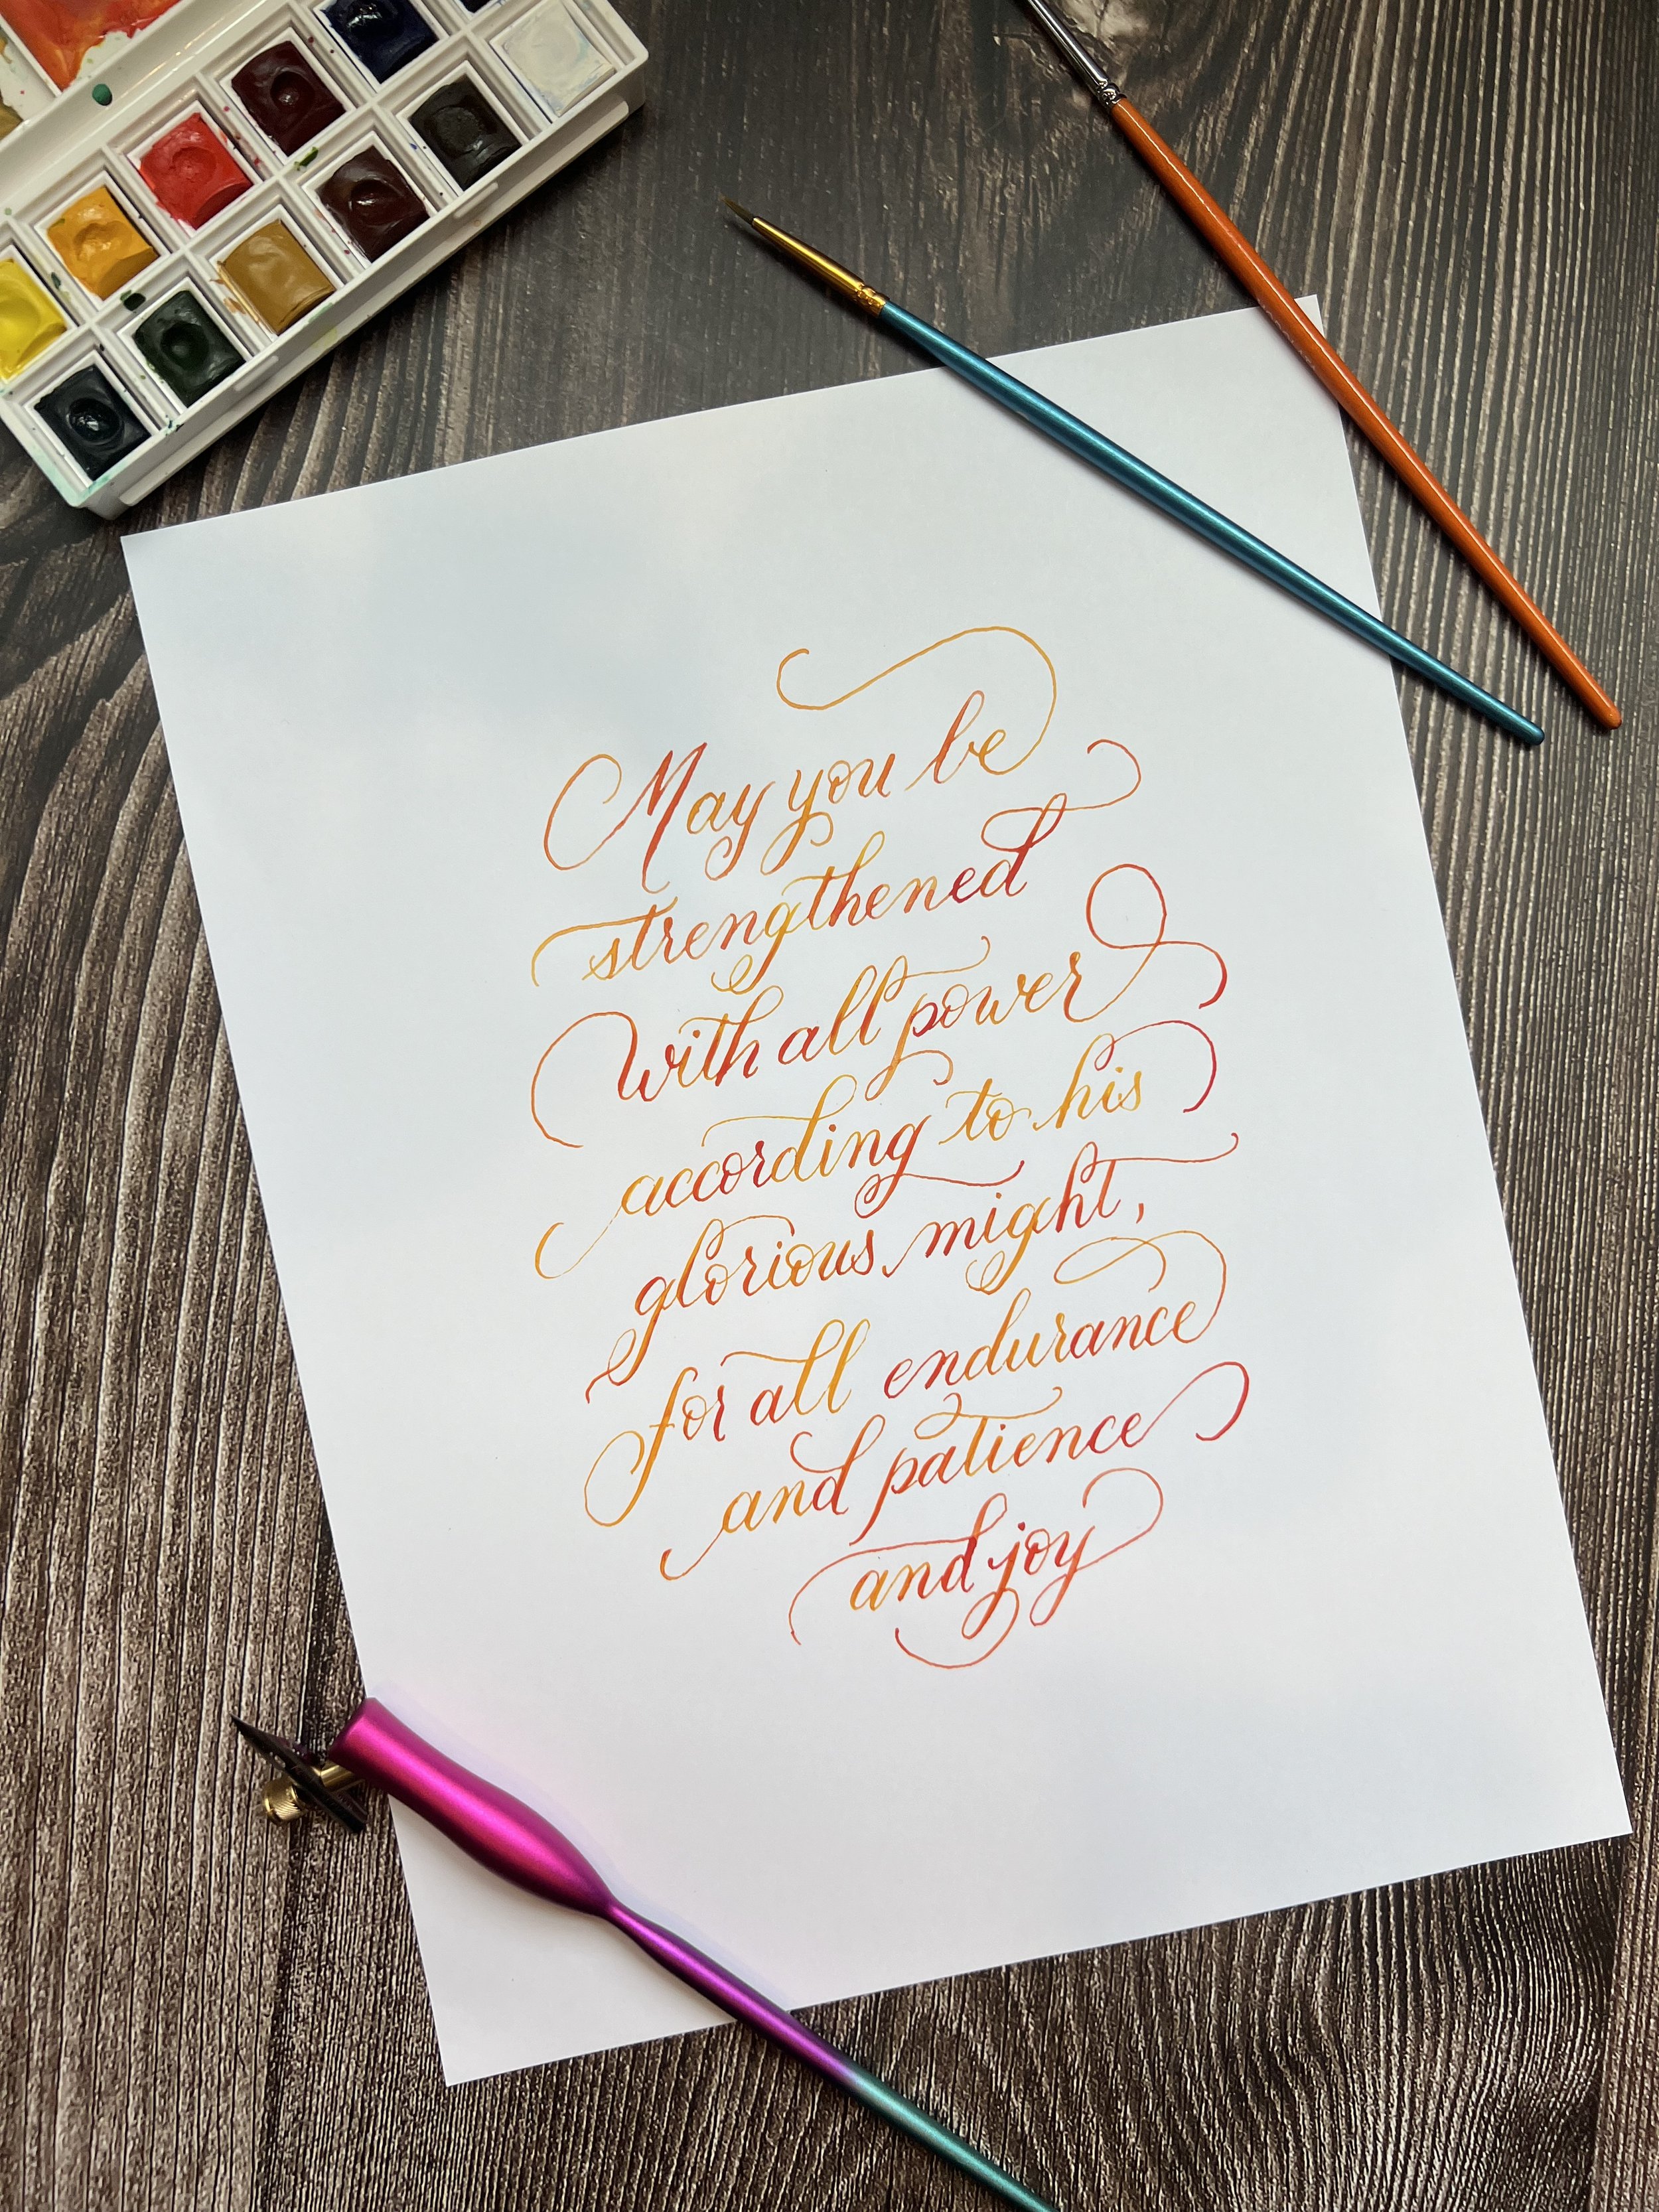 May you be
strengthened
with all power
according to his
glorious might,
for all endurance
and patience
and joy